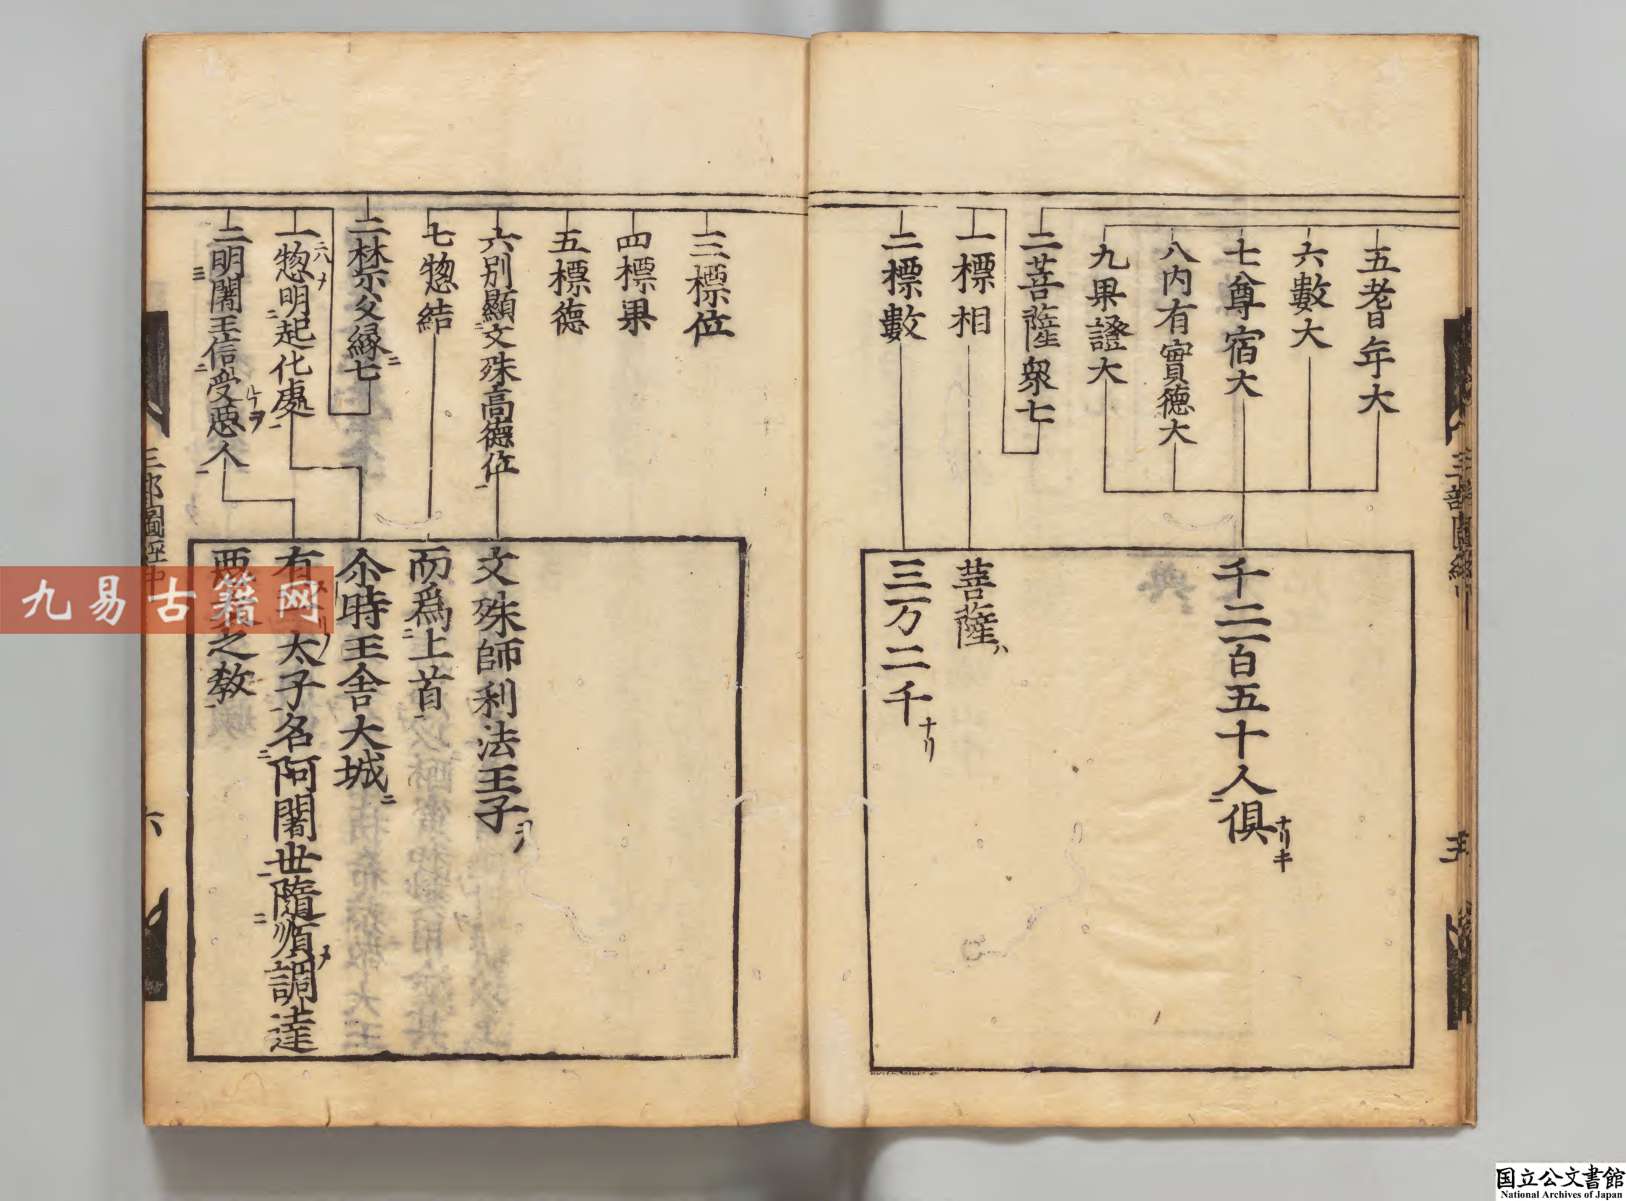 五耆年大
六數大
七尊宿大
八内有實德大
九果證大
千二百五十人俱ナリキ
二菩薩衆七
一標相
菩薩ハ
二標數
三万二千ナリ
三部圖經
五
三標位
四標果
五標德
六別顯文殊高德位
文殊師利法王子ヲ
七惣結
而爲上首
二禁父縁七
尒時王舍大城ニ
一惣明起化處
有 太子名阿闍世隨順調達
二明闍王信受惡人
惡 之敎
三部圖經中
六
九易古籍网
国立公文書館
National Archives of Japan